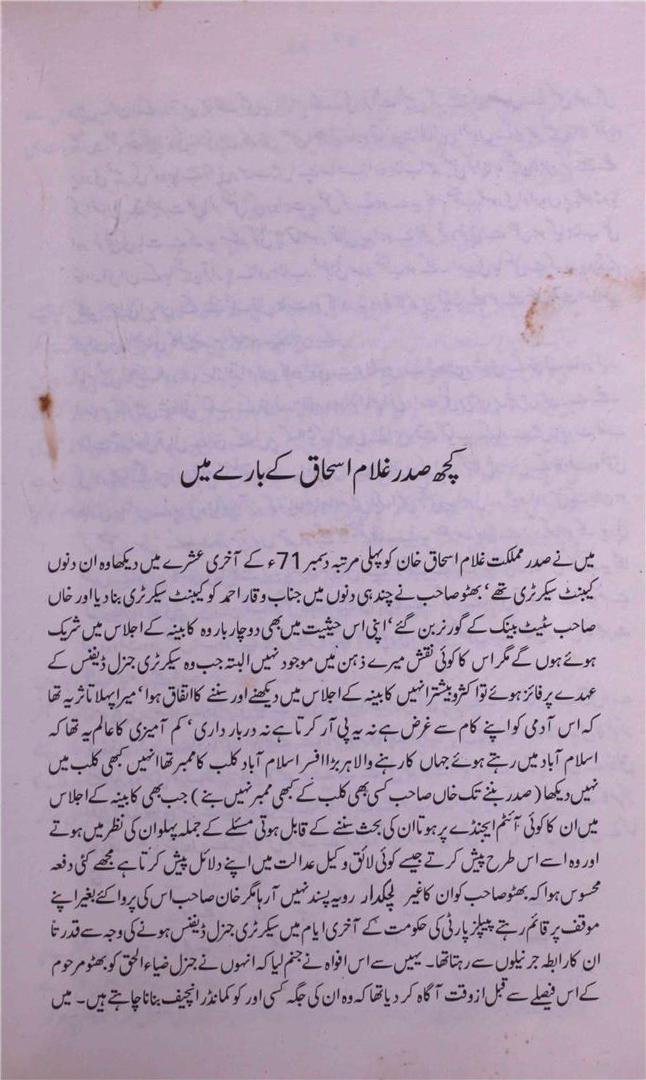 کچھ صدر غلام اسحاق کے بارے میں
میں نے صدر مملکت غلام اسحاق خان کو پہلی مرتبہ دسمبر 71ء کے آخری عشرے میں دیکھا وہ ان دنوں
کیبنٹ سیکرٹری تھے‘ بھٹو صاحب نے چند ہی دنوں میں جناب وقار احمد کو کیبنٹ سیکرٹری بنا دیا اور خاں
صاحب سٹیٹ بینک کے گورنر بن گئے‘ اپنی اس حیثیت میں بھی دو چار بار وہ کابینہ کے اجلاس میں شریک
ہوئے ہوں گے مگر اس کا کوئی نقش میرے ذہن میں موجود نہیں البتہ جب وہ سیکرٹری جنرل ڈیفنس کے
عہدے پر فائز ہوئے تو اکثر و بیشتر انہیں کابینہ کے اجلاس میں دیکھنے اور سننے کا اتفاق ہوا‘ میرا پہلا تاثر یہ تھا
کہ اس آدمی کو اپنے کام سے غرض ہے نہ یہ پی آر کرتا ہے نہ دربار داری‘ کم آمیزی کا عالم یہ تھا کہ
اسلام آباد میں رہتے ہوئے جہاں کا رہنے والا ہر بڑا افسر اسلام آباد کلب کا ممبر تھا انہیں کبھی کلب میں
نہیں دیکھا (صدر بننے تک خاں صاحب کسی بھی کلب کے کبھی ممبر نہیں بنے) جب بھی کابینہ کے اجلاس
میں ان کا کوئی آئٹم ایجنڈے پر ہوتا ان کی بحث سننے کے قابل ہوتی مسئلے کے جملہ پہلو ان کی نظر میں ہوتے
اور وہ اسے اس طرح پیش کرتے جیسے کوئی لائق وکیل عدالت میں اپنے دلائل پیش کرتا ہے مجھے کئی دفعہ
محسوس ہوا کہ بھٹو صاحب کو ان کا غیر لچکدار رویہ پسند نہیں آ رہا مگر خان صاحب اس کی پروا کئے بغیر اپنے
موقف پر قائم رہتے پیپلز پارٹی کی حکومت کے آخری ایام میں سیکرٹری جنرل ڈیفنس ہونے کی وجہ سے قدرتا
ان کا رابطہ جرنیلوں سے رہتا تھا۔ یہیں سے اس افواہ نے جنم لیا کہ انہوں نے جنرل ضیاء الحق کو بھٹو مرحوم
کے اس فیصلے سے قبل از وقت آگاہ کر دیا تھا کہ وہ ان کی جگہ کسی اور کو کمانڈر انچیف بنانا چاہتے ہیں۔ میں